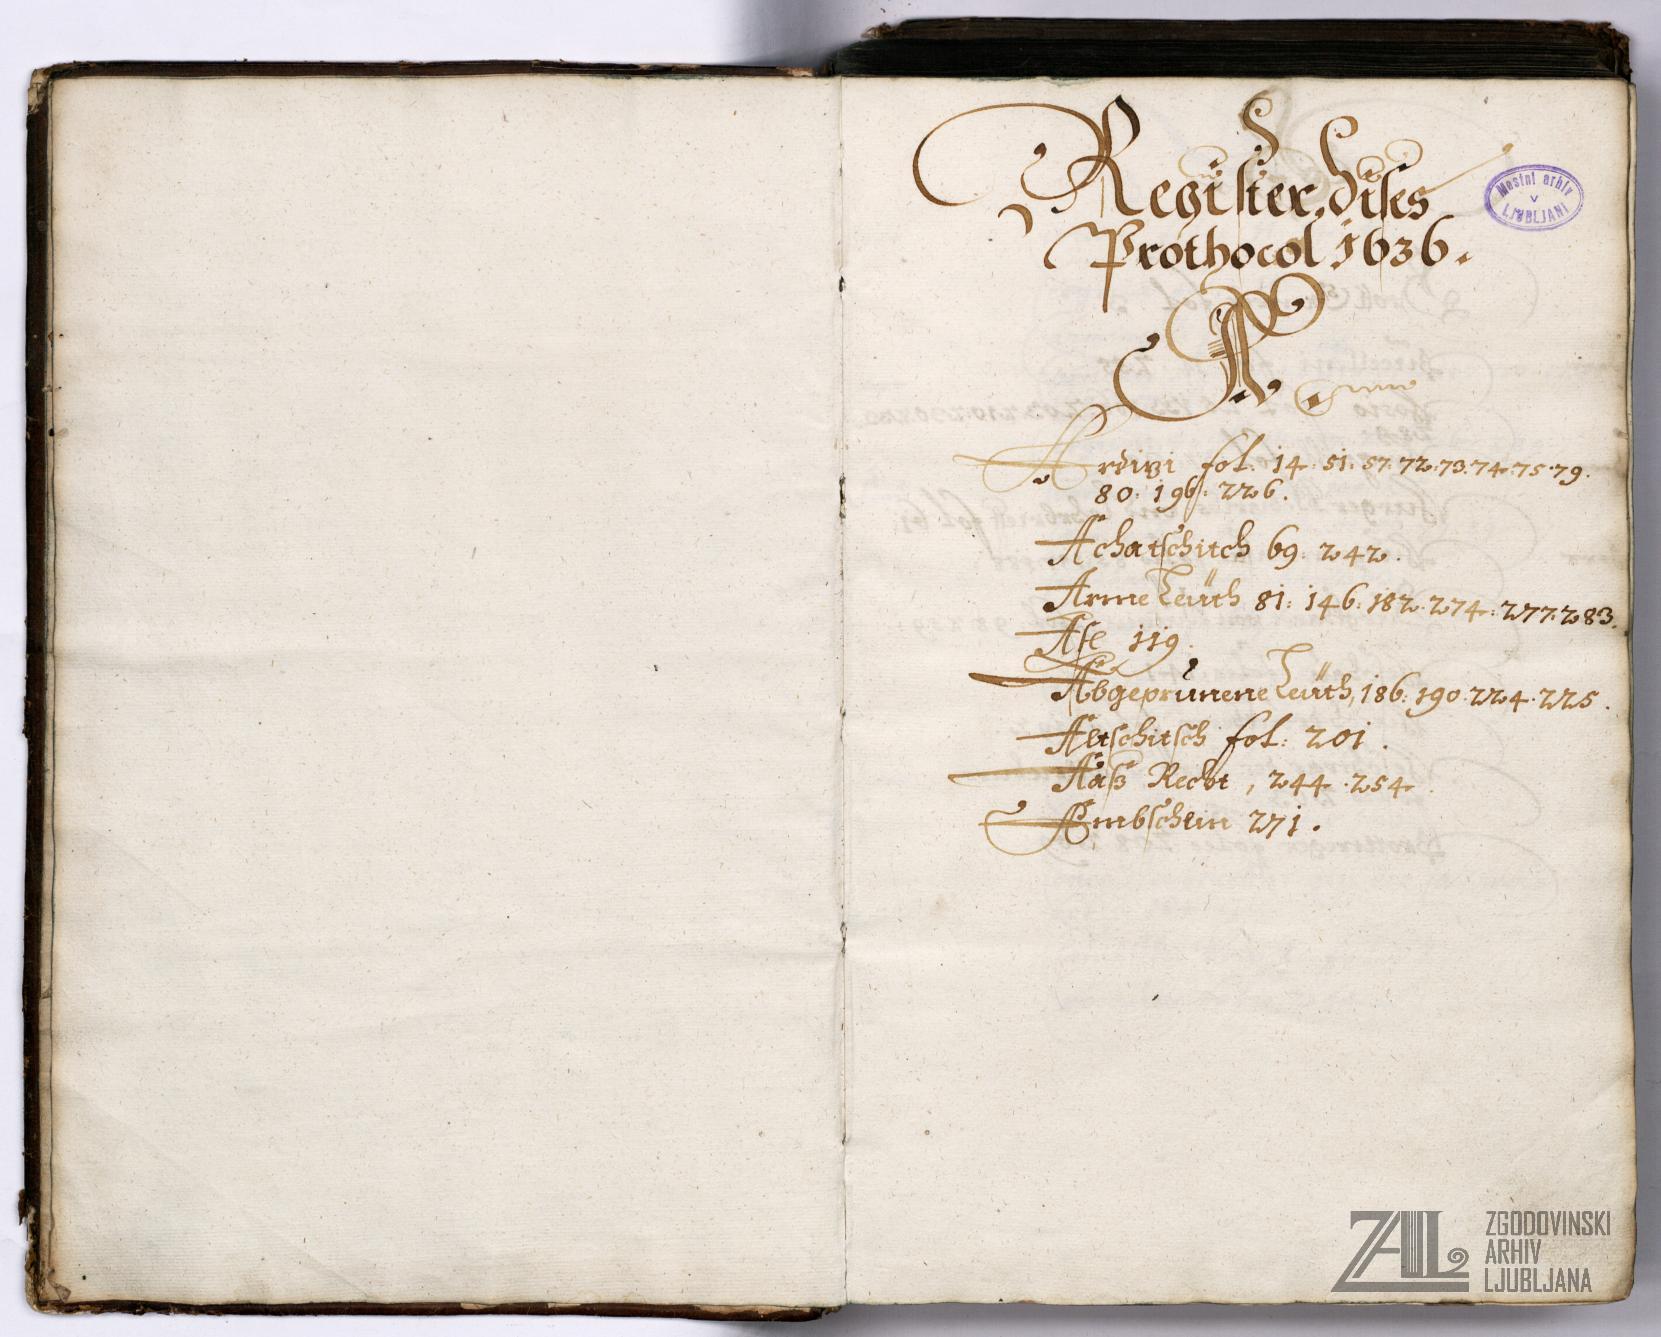 Register dises
Prothocol 1636.
Mestni arhiv
v
LJUBLJANI
A
Ardizi fol: 14. 51. 57. 72. 73. 74. 75. 79.
80. 196. 226.
Achatschitch 69. 242.
Arme Leüth 81. 146. 182. 274. 277. 283.
Ase 119.
Abgeprunene Leüth, 186. 190. 224. 225.
Altschitsch fol: 201.
Aaß Recht, 244. 254.
Ambschein 271.
ZAL
ZGODOVINSKI
ARHIV
LJUBLJANA